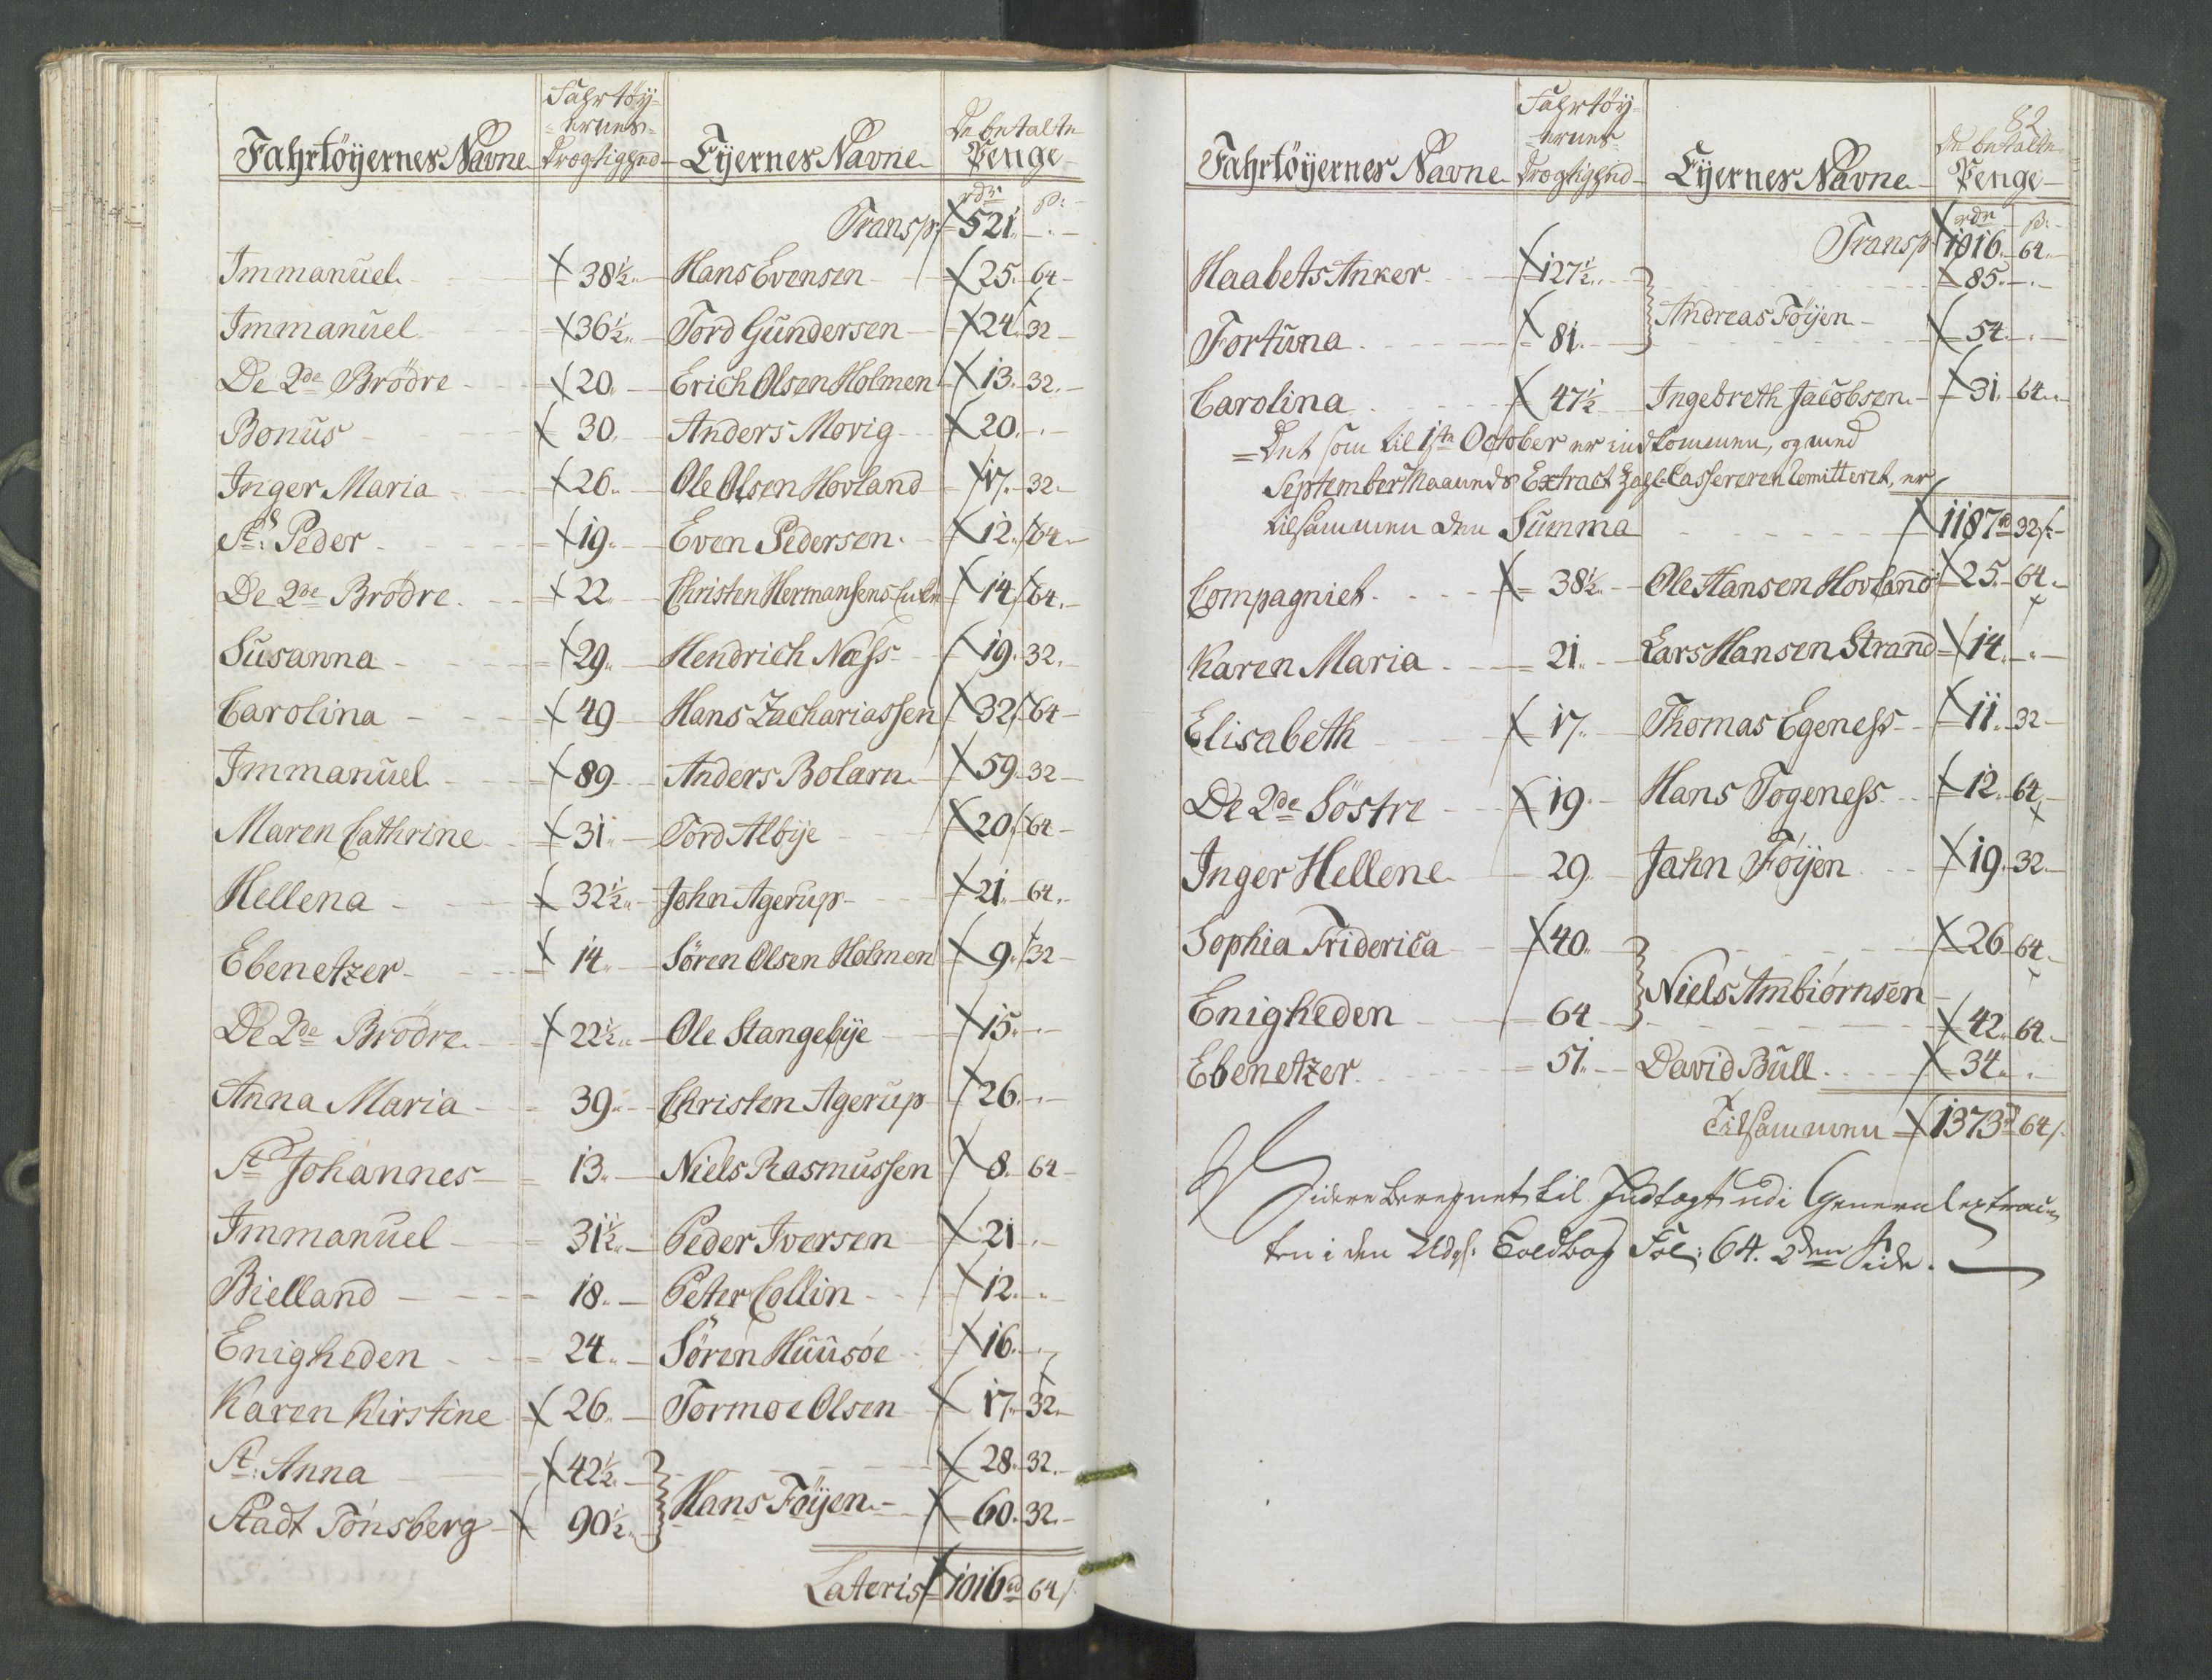 Fahrtöyernes Navne Fahrtöy=ernes Drægtighed Eyernes Navne De betalte Penge
rdr ß:
Transp: 521. -
Immanuel. 38½. Hans Evensen 25. 64
Immanuel. 36½. Tord Gundersen 24. 32
De 2de Brödre 20. Erich Olsen Holmen 13. 32.
Bonus 30. Anders Movig 20. -
Inger Maria 26. Ole Olsen Hovland 17. 32.
St: Peder 19. Even Pedersen. 12. 64.
De 2de Brödre. 22. Christen Hermansens 14. 64.
Susanna 29. Hendrich Næss 19. 32.
Carolina 49 Hans Zachariassen 32. 64
Immanuel. 89 Anders Bolærn. 59. 32
Maren Cathrine. 31. Tord Albye 20. 64
Hellena 32½. John Agerup 21. 64.
Ebenetzer 14. Sören Olsen Holmen 9. 32
De 2de Brödre. 22½. Ole Stangebye 15. -
Anna Maria 39. Christen Agerup 26. -
St Johannes 13. Niels Rasmussen 8. 64
Immanuel 31½. Peder Iversen 21. -
Bielland 18. Peter Collin 12. -
Enigheden 24. Sören Huusöe 16. -
Karen Kirstine 26. Tormoe Olsen 17. 32.
St: Anna 42½. 28. 32.
Hans Föyen.
Stadt Tönsberg 90½. 60. 32.
Lateris 1016rd 64ß.
82
Fahrtöyernes Navne Fahrtöy=ernes Drægtighed Eyernes Navne De betalte Penge
rdr ß:
Transp 1016. 64.
Haabets Anker 127½. 85. -
Andreas Föyen
Fortuna 81. 54. -
Carolina 47½ Ingebreth Jacobsen. 31. 64.
= Det som til 1ste October er indkommen, og med
September Maaneds Extract Zahl-Cassereren remitteret, er
tilsammen den Summa 1187rd 32ß
Compagniet. 38½. Ole Hansen Hovland 25. 64.
Karen Maria 21. Lars Hansen Strand 14. -
Elisabeth 17. Thomas Egeness 11. 32
De 2de Söstre 19. Hans Togeness 12. 64.
Inger Hellene. 29. Jahn Föyen 19. 32.
Sophia Friderica 40. 26 64.
Niels Ambiørnsen
Enigheden 64 42. 64.
Ebenetzer 51. David Bull 34. -
Tilsammen 1373rd 64ß.
Videre beregnet til Indtægt udi General extrac-
ten i den Udgl: Toldbog Fol: 64. 2den Side.